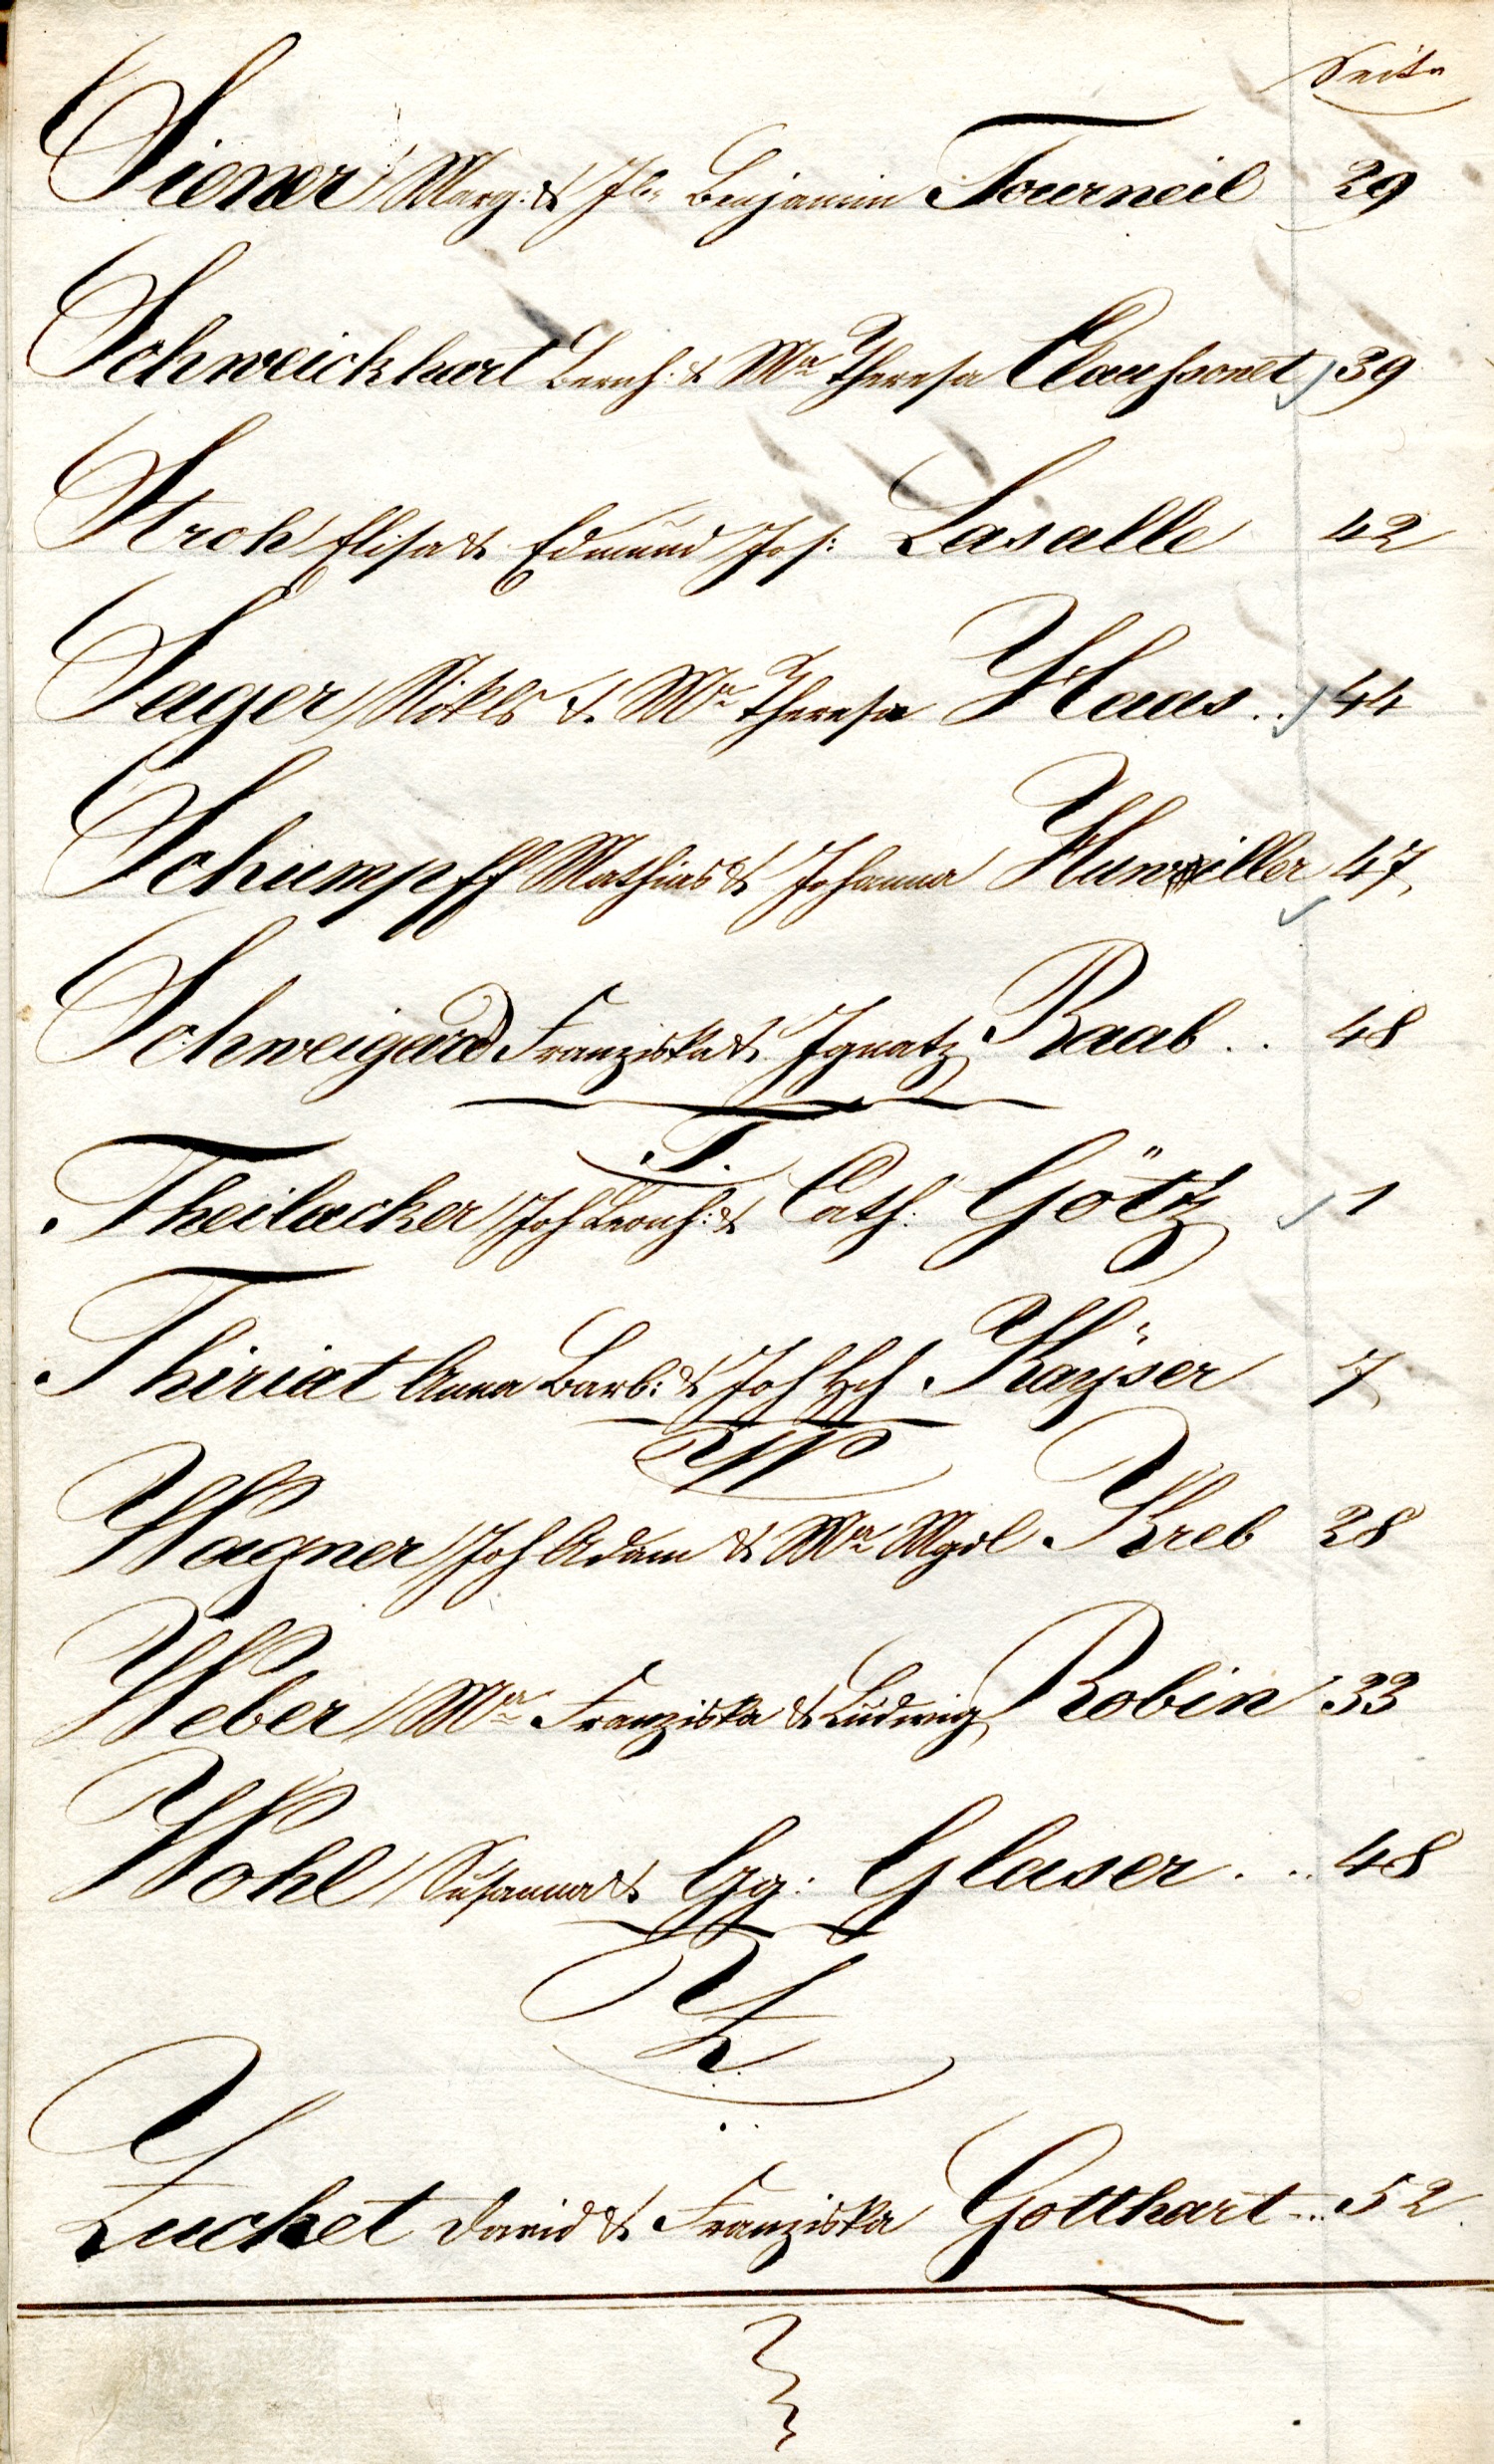 Seite
Siener Marg: & Benjamin Tourneil 29
Schweickhart Bernh: & Ma Theresa 39
Stroh Elisa & Edmund Jos: Lasalle 42
Sager Nikls & Ma Theresa Haas .. 44
Schumpff Mathias & Johanna Hunwiller 47
Schweigard Franziska & Ignatz Raab .. 48
T.
Theilacker Joh Leonh: & Cath: Götz 1
Thiriat Anna Barb: & Joh Hch Kaÿser 7
W
Wagner Joh Adam & Ma Mgdl Kreb 28
Weber Ma Franziska & Ludwig Robin 33
Wohl Susanna & Gg: Glaser . .. 48
Z
Zucket David & Franziska Gotthart ... 52